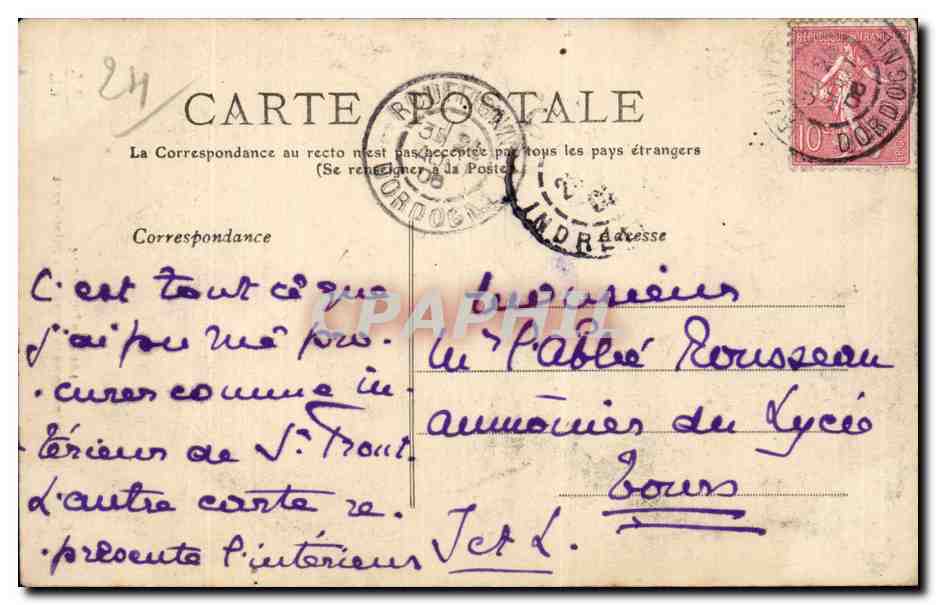 24
CARTE POSTALE
La Correspondance au recto n'est pas acceptée par tous les pays étrangers
(Se renseigner à la Poste)
RÉPUBLIQUE FRANÇAISE
10
DORDOGNE
DORDOGNE
06
INDRE
Correspondance
Adresse
C'est tout ce que
j'ai pu me pro-
curer comme in-
térieur de St Front.
L'autre carte re-
présente l'intérieur
Monsieur
Mr l'abbé Rousseau
aumônier du Lycée
Tours
J et L.
CPAPHIL